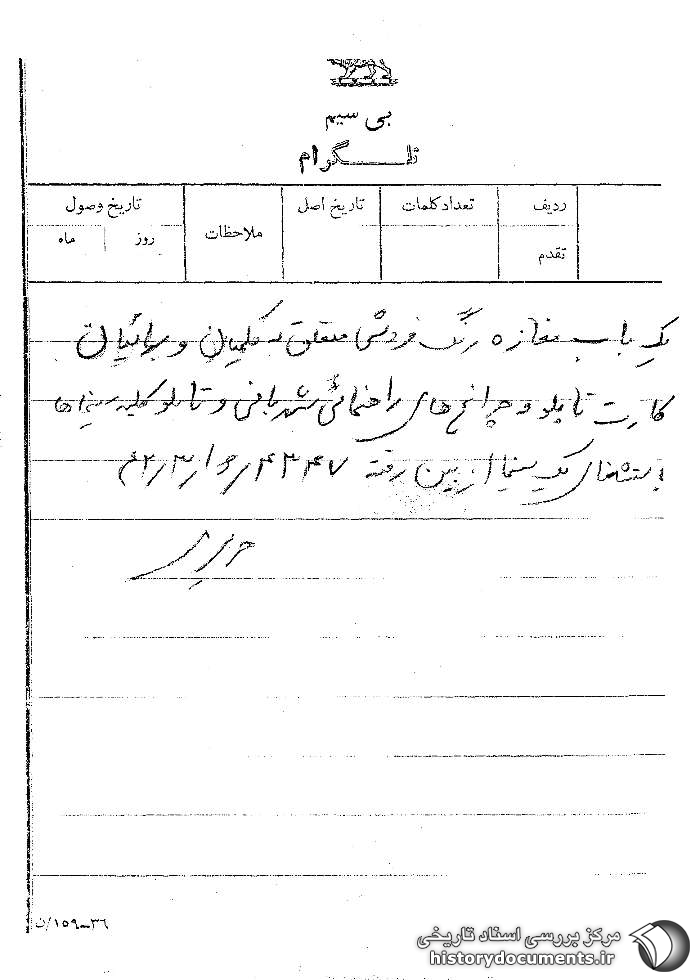 بی سیم
تلگرام
ردیف
تقدم
تعداد کلمات
تاریخ اصل
ملاحظات
تاریخ وصول
روز
ماه
یک باب مغازه رنگ فروشی متعلق به کلیمیان و بهائیان
کارت تابلو و چراغ های راهنمائی شهربانی و تابلو کلیه سینماها
باستثنای یک سینما از بین رفته ۴۳۴۷
۳۶-۱۵۹/ن
مرکز بررسی اسناد تاریخی
historydocuments.ir